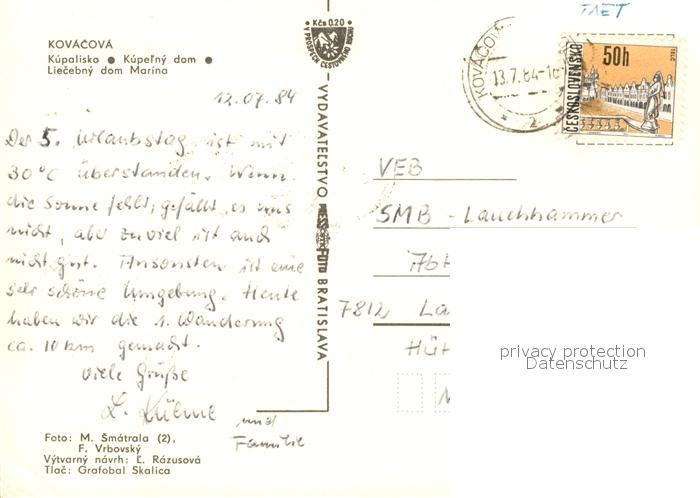 KOVÁČOVÁ
Kúpalisko ● Kúpeľný dom ●
Liečebný dom Marína
12.07.84
Der 5. Urlaubstag ist mit
30°C überstanden. Wenn
die Sonne fehlt, gefällt es uns
nicht, aber zuviel ist auch
nicht gut. Ansonsten ist eine
sehr schöne Umgebung. Heute
haben wir die 1. Wanderung
ca. 10 km gemacht.
Viele Grüße
L. Kühne und
Familie
Foto: M. Šmátrala (2),
F. Vrbovský
Výtvarný návrh: Ľ. Rázusová
Tlač: Grafobal Skalica
Kčs 0.20
V PROSPECH CESTOVNÉHO RUCHU
VYDAVATEĽSTVO
BRATISLAVA
KOVÁČOVÁ
13.7.84-16
2
50h
ČESKOSLOVENSKO
TELČ
VEB
SMB - Lauchhammer
7812 La
privacy protection
Datenschutz